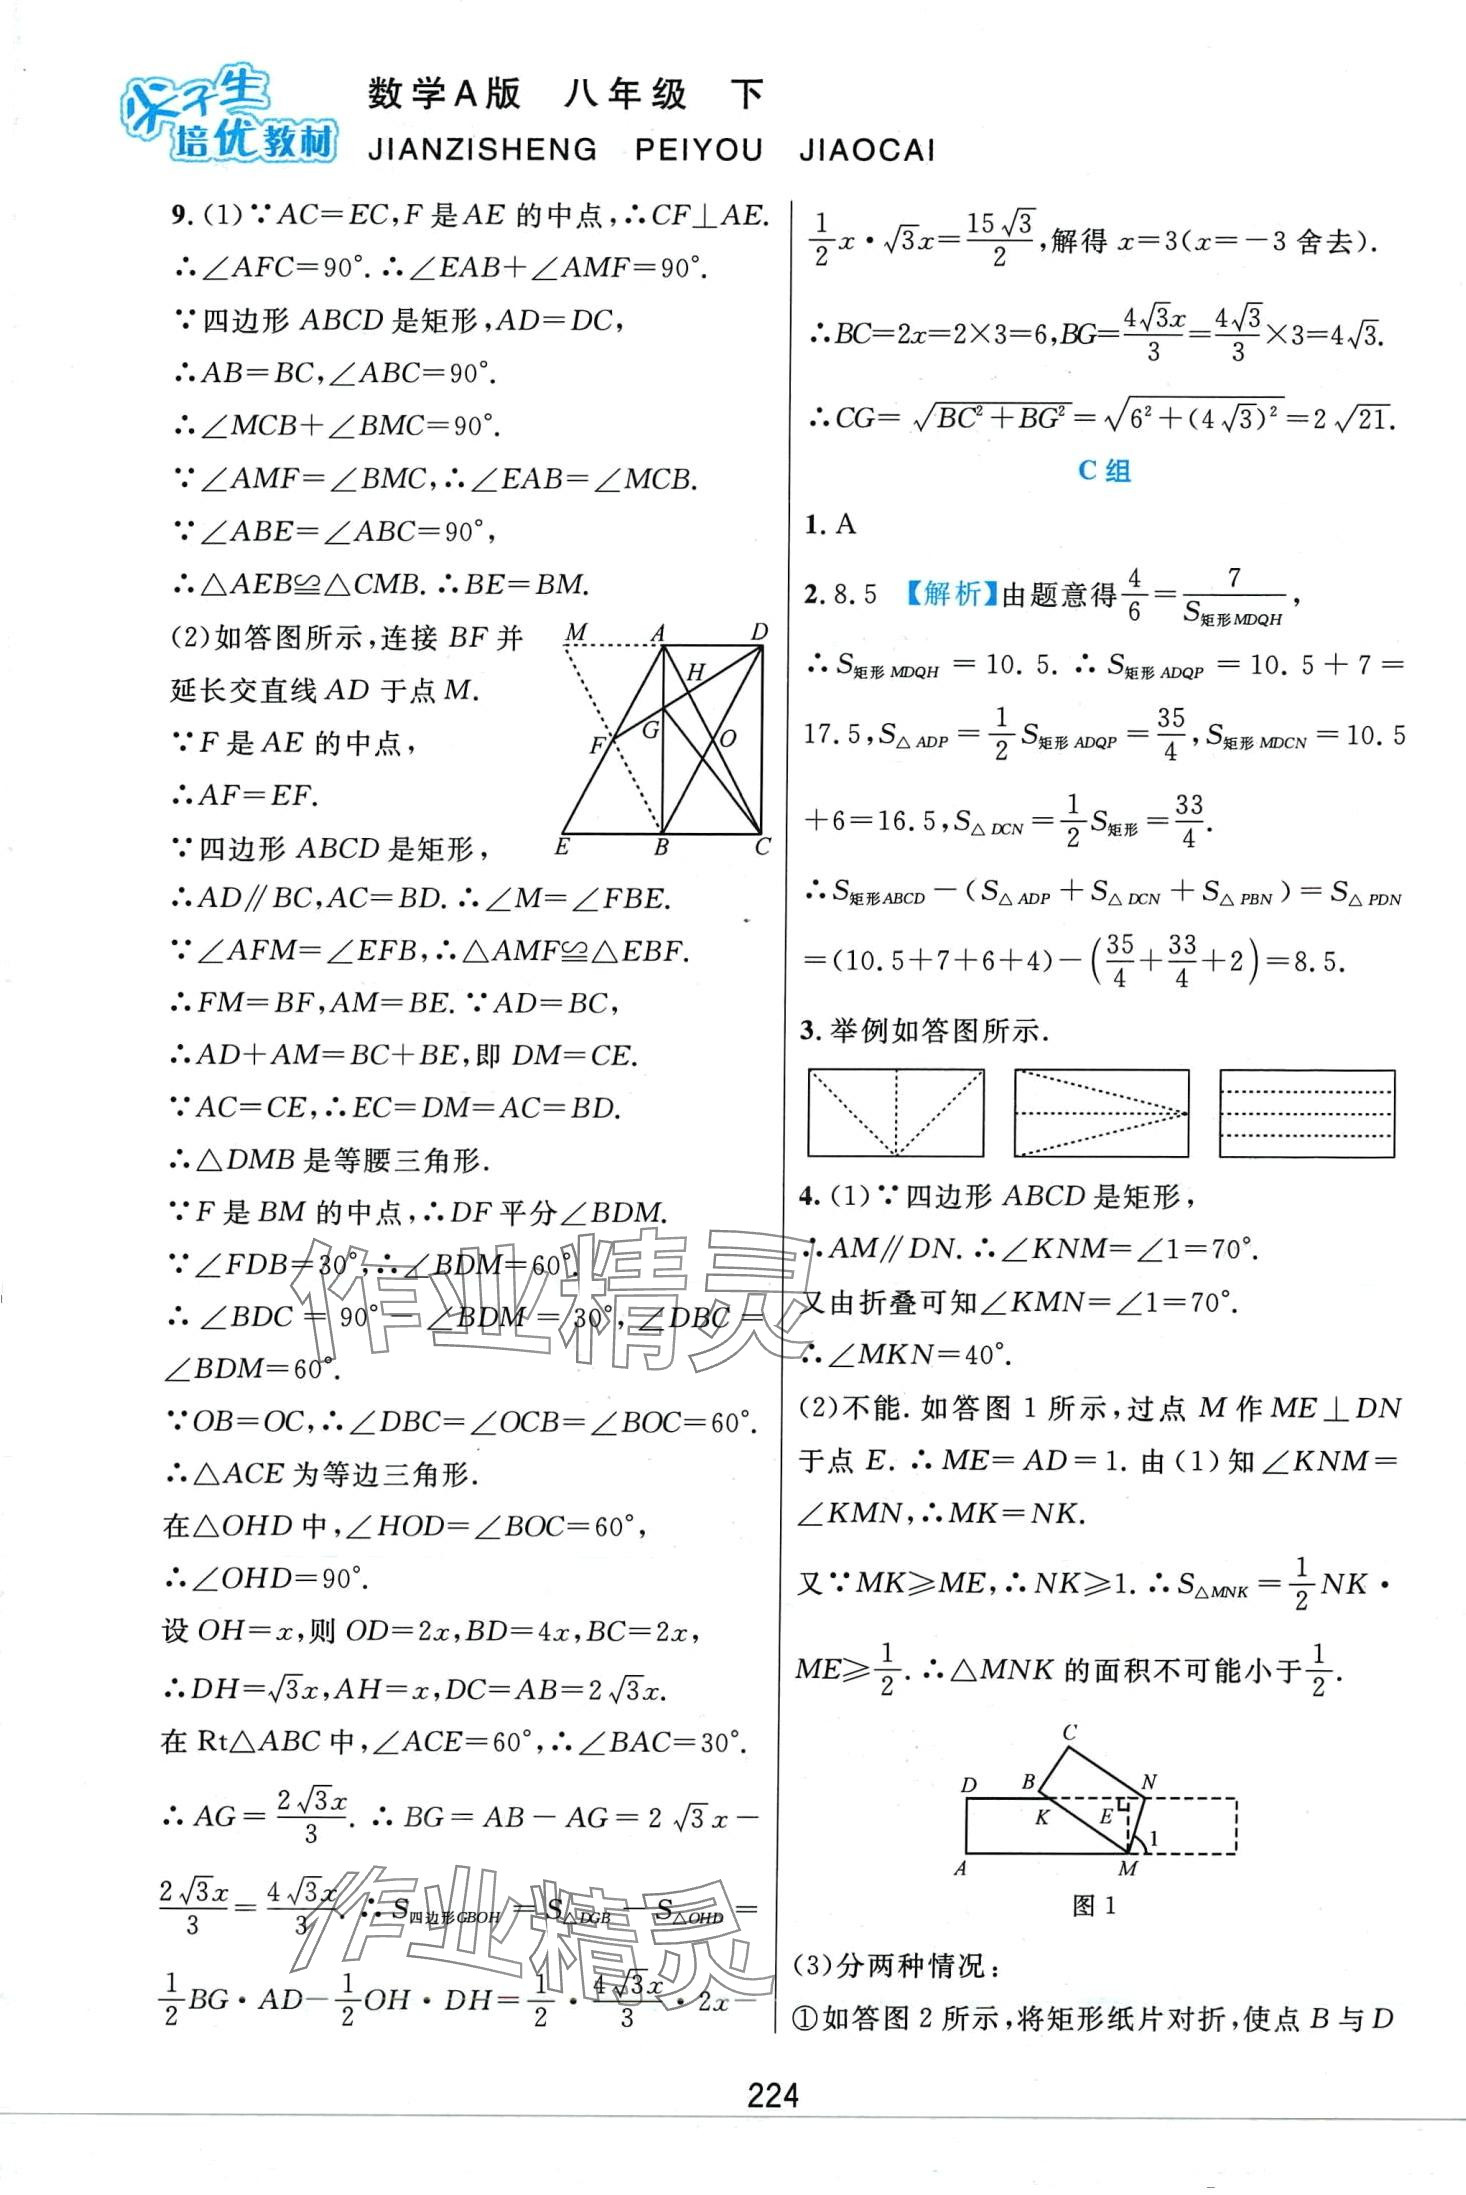 尖子生
培优教材
数学A版 八年级 下
JIANZISHENG PEIYOU JIAOCAI
9.(1)∵AC=EC,F是AE的中点,∴CF⊥AE.
∴∠AFC=90°.∴∠EAB+∠AMF=90°.
∵四边形ABCD是矩形,AD=DC,
∴AB=BC,∠ABC=90°.
∴∠MCB+∠BMC=90°.
∵∠AMF=∠BMC,∴∠EAB=∠MCB.
∵∠ABE=∠ABC=90°,
∴△AEB≌△CMB.∴BE=BM.
(2)如答图所示,连接BF并
延长交直线AD于点M.
∵F是AE的中点,
∴AF=EF.
∵四边形ABCD是矩形,
M A D
H
G
F O
E B C
∴AD∥BC,AC=BD.∴∠M=∠FBE.
∵∠AFM=∠EFB,∴△AMF≌△EBF.
∴FM=BF,AM=BE.∵AD=BC,
∴AD+AM=BC+BE,即DM=CE.
∵AC=CE,∴EC=DM=AC=BD.
∴△DMB是等腰三角形.
∵F是BM的中点,∴DF平分∠BDM.
∵∠FDB=30°,∴∠BDM=60°.
∴∠BDC=90°-∠BDM=30°,∠DBC=
∠BDM=60°.
∵OB=OC,∴∠DBC=∠OCB=∠BOC=60°.
∴△ACE为等边三角形.
在△OHD中,∠HOD=∠BOC=60°,
∴∠OHD=90°.
设OH=x,则OD=2x,BD=4x,BC=2x,
∴DH=√3x,AH=x,DC=AB=2√3x.
在Rt△ABC中,∠ACE=60°,∴∠BAC=30°.
∴AG=2√3x/3.∴BG=AB-AG=2√3x-
2√3x/3=4√3x/3.∴S四边形GBOH=S△DGB-S△OHD=
1/2BG·AD-1/2OH·DH=1/2·4√3x/3·2x-
1/2x·√3x=15√3/2,解得x=3(x=-3舍去).
∴BC=2x=2×3=6,BG=4√3x/3=4√3/3×3=4√3.
∴CG=√(BC²+BG²)=√(6²+(4√3)²)=2√21.
C组
1.A
2.8.5 【解析】由题意得4/6=7/S矩形MDQH,
∴S矩形MDQH=10.5.∴S矩形ADQP=10.5+7=
17.5,S△ADP=1/2S矩形ADQP=35/4,S矩形MDCN=10.5
+6=16.5,S△DCN=1/2S矩形=33/4.
∴S矩形ABCD-(S△ADP+S△DCN+S△PBN)=S△PDN
=(10.5+7+6+4)-(35/4+33/4+2)=8.5.
3.举例如答图所示.
4.(1)∵四边形ABCD是矩形,
∴AM∥DN.∴∠KNM=∠1=70°.
又由折叠可知∠KMN=∠1=70°.
∴∠MKN=40°.
(2)不能.如答图1所示,过点M作ME⊥DN
于点E.∴ME=AD=1.由(1)知∠KNM=
∠KMN,∴MK=NK.
又∵MK≥ME,∴NK≥1.∴S△MNK=1/2NK·
ME≥1/2.∴△MNK的面积不可能小于1/2.
C
D B N
K E
1
A M
图1
(3)分两种情况:
①如答图2所示,将矩形纸片对折,使点B与D
作业精灵
作业精灵
224